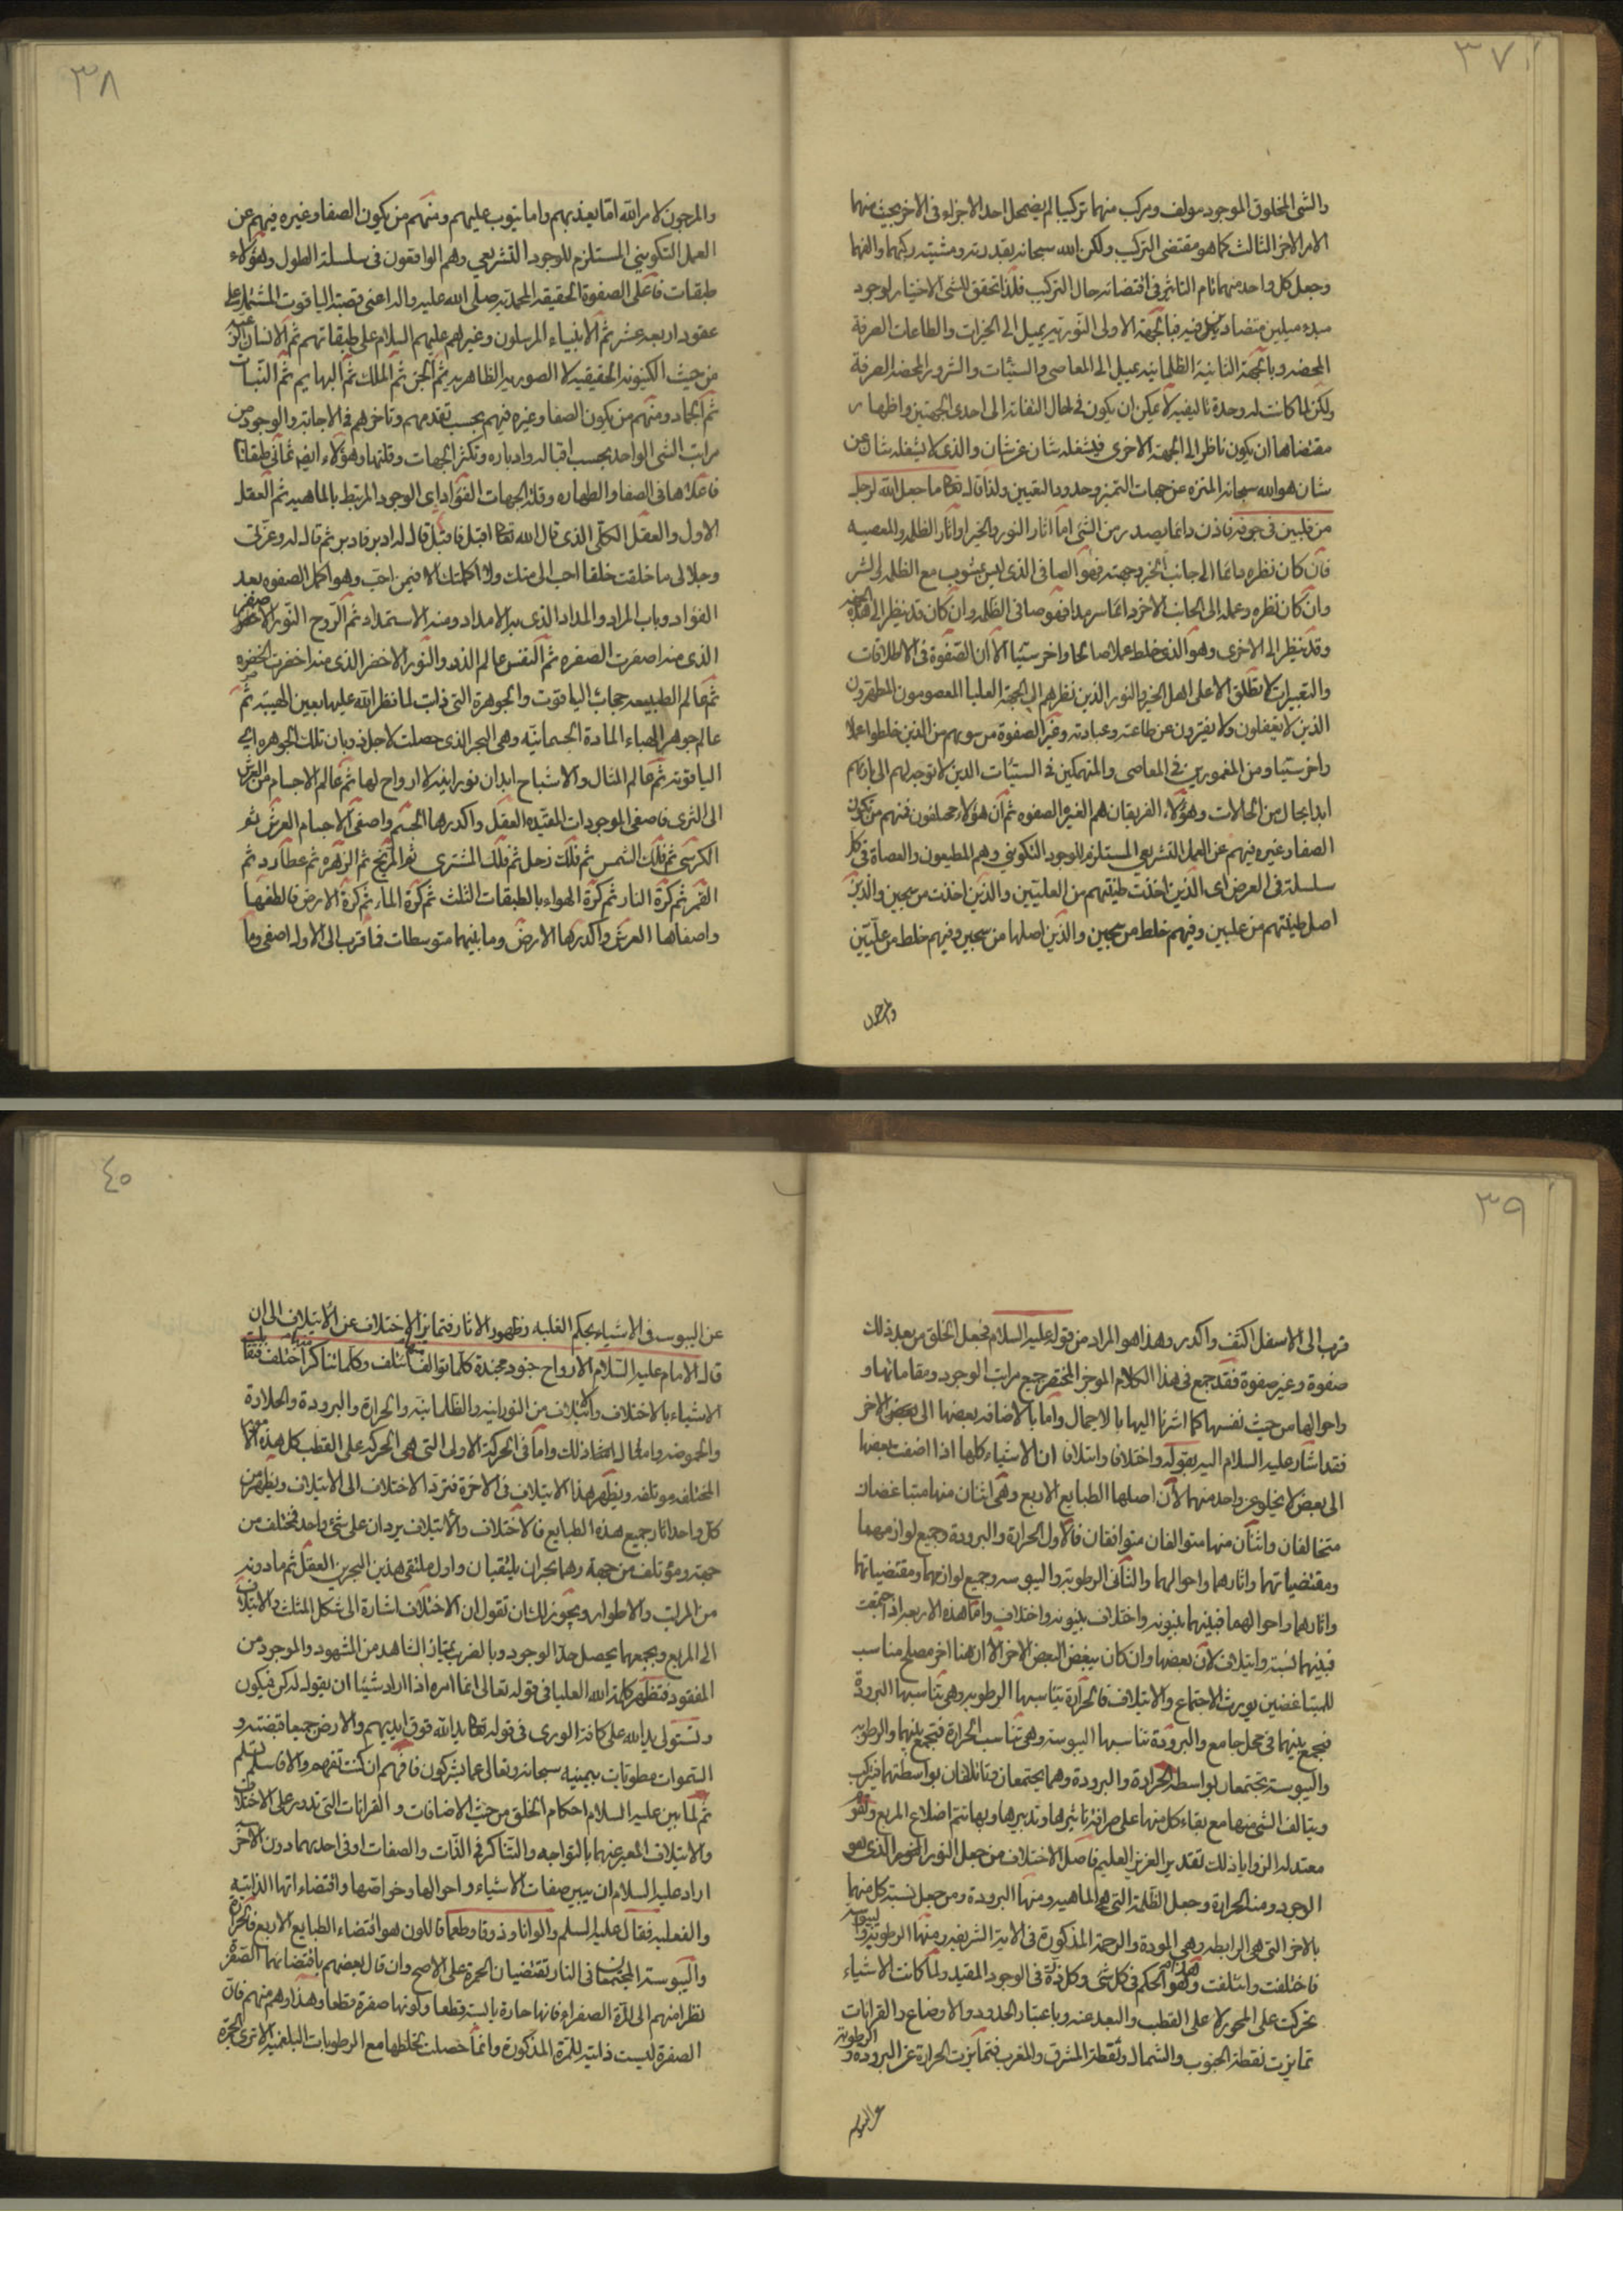 ٣٧
والشئ المخلوق الموجود مولف ومركب منهما تركيبا لم يضمحل احد الاجزاء فى الاخر بحيث منهما
الامر الاخر الثالث كما هو مقتضى التركيب ولكن الله سبحانه بقدرته ومشيته ركبهما والفهما
وجعل كل واحد منهما تام التاثير فى اقتضائه حال التركيب فلذا تحقق للشئ الاختيار لوجود
مبدء ميلين متضادين فيه فبالجهة الاولى النورية يميل الى الخيرات والطاعات الصرفة
المحضه وبالجهة الثانية الظلمانية يميل الى المعاصى والسيئات والشرور المحضه الصرفة
ولكن لما كانت له وحدة تاليفيه لا يمكن ان يكون فى حال التفاته الى احدى الجهتين واظهار
مقتضاها ان يكون ناظرا الى الجهة الاخرى فيشغله شان عن شان والذى لا يشغله شان عن
شان هو الله سبحانه المنزه عن جهات التميز وحدود التعيين ولذا قال تعالى ما جعل الله لرجل
من قلبين فى جوفه فاذن دائما يصدر من الشئ اما اثار النور والخير او اثار الظلمه والمعصيه
فان كان نظره دائما الى جانب الخير وجهته فهو الصافى الذى ليس بمشوب مع الظلمه والشر
وان كان نظره وعمله الى الجانب الاخر دائما سرمدا فهو صافى الظلمه وان كان قد ينظر الى هذه الجهة
وقد ينظر الى الاخرى وهو الذى خلط عملا صالحا واخر سيئا الا ان الصفوة فى الاطلاقات
والتعبيرات لا تطلق الا على اهل الخير والنور الذين نظرهم الى الجهة العليا المعصومون المطهرون
الذين لا يغفلون ولا يفترون عن طاعته وعبادته وغير الصفوة من سويهم من الذين خلطوا عملا
واخر سيئا ومن المغمورين فى المعاصى والمنهمكين فى السيئات الذين لا توجه لهم الى بارئهم
ابدا بحال من الحالات وهؤلاء الفريقان هم الغير الصفوه ثم ان هؤلاء مختلفون فمنهم من تكون
الصفا وغيره فيهم عن العمل التشريعى المستلزم للوجود التكوينى وهم المطيعون والعصاة فى كل
سلسلة فى العرض اى الذين اخذت طينتهم من العليين والذين اخذت من سجين والذين
اصل طينتهم من عليين وفيهم خلط من سجين والذين اصلها من سجين وفيهم خلط من عليين
والمرجون
٣٨
والمرجون لامر الله اما يعذبهم واما يتوب عليهم ومنهم من يكون الصفا وغيره فيهم عن
العمل التكوينى المستلزم للوجود التشريعى وهم الواقفون فى سلسلة الطول وهؤلاء
طبقات فاعلى الصفوة الحقيقه المحمدية صلى الله عليه واله اعنى قصبة الياقوت المشتملة على
عقود اربعه عشر ثم الانبياء المرسلون وغيرهم عليهم السلام على طبقاتهم ثم الانسان الرعية
من حيث الكينونه الحقيقيه لا الصوريه الظاهريه ثم الجن ثم الملك ثم البهايم ثم النبات
ثم الجماد ومنهم من يكون الصفا وغيره فيهم بحسب تقدمهم وتاخرهم فى الاجابة والوجود من
مراتب الشئ الواحد بحسب اقباله وادباره وتكثر الجهات وقلتها وهؤلاء ايضا ثمانى طبقات
فاعلاها فى الصفا والطهاره وقلة الجهات الفؤاد اى الوجود المرتبط بالماهيه ثم العقل
الاول والعقل الكلى الذى قال الله تعالى اقبل فاقبل قال له ادبر فادبر ثم قال له وعزتى
وجلالى ما خلقت خلقا احب الى منك ولا اكملتك الا فيمن احب وهو اكمل الصفوه بعد
الفؤاد وباب المراد والمداد الذى به الامداد ومنه الاستمداد ثم الروح النور الاصفر
الذى منه اصفرت الصفره ثم النفس عالم الذر والنور الاخضر الذى منه اخضرت الخضره
ثم عالم الطبيعه حجاب الياقوت والجوهرة التى ذابت لما نظر الله عليها بعين الهيبة ثم
عالم جوهر الهباء المادة الجسمانيه وهى البحر الذى حصلت لاجل ذوبان تلك الجوهره اى
الياقوتة ثم عالم المثال والاشباح ابدان نورانية لا ارواح لها ثم عالم الاجسام من العرش
الى الثرى فاصفى الموجودات المقيده العقل واكدرها الجسم واصفى الاجسام العرش ثم
الكرسى ثم فلك الشمس ثم فلك زحل ثم فلك المشترى ثم المريخ ثم الزهره ثم عطارد ثم
القمر ثم كرة النار ثم كرة الهواء بالطبقات الثلث ثم كرة الماء ثم كرة الارض فالطفها
واصفاها العرش واكدرها الارض وما بينهما متوسطات فما قرب الى الاول اصفى وما
٣٩
قرب الى الاسفل اكثف واكدر وهذا هو المراد من قوله عليه السلام فجعل الخلق من بعد ذلك
صفوة وغير صفوة فقد جمع فى هذا الكلام الموجز المختصر جميع مراتب الوجود ومقاماتها و
واحوالها من حيث نفسها كما اشرنا اليها بالاجمال واما بالاضافه بعضها الى بعض الاخر
فقد اشار عليه السلام اليه بقوله واختلاف وايتلاف ان الاشياء كلها اذا اضفت بعضها
الى بعض لا يخلو عن واحد منهما لان اصلها الطبايع الاربع وهى اثنان منها متباغضان
متخالفان واثنان منها متوالفان متوافقان فالاول الحرارة والبرودة وجميع لوازمهما
ومقتضياتهما واثارهما واحوالهما والثانى الرطوبة واليبوسه وجميع لوازمهما ومقتضياتهما
واثارهما واحوالهما فبينهما بينونه واختلاف بينونه واختلاف واما هذه الاربعه اذا اجتمعت
فبينهما نسبة وايتلاف لان بعضها وان كان يبغض البعض الاخر الا ان هنا اخر مصلح مناسب
للمتباغضين يورث الاجتماع والايتلاف فالحرارة يناسبها الرطوبه وهى تناسبها البرودة
فيجمع بينهما فى محل جامع والبرودة تناسبها اليبوسة وهى تناسب الحرارة فتجمع بينهما والرطوبه
واليبوسة يجتمعان بواسطة الحرارة والبرودة وهما يجتمعان ويتالفان بواسطتهما فيركب
ويتالف الشئ منها مع بقاء كل منها على صرافة تاثيرها وتدبيرها وبها تتم اضلاع المربع وهو
معتدله الزوايا ذلك تقدير العزيز العليم فاصل الاختلاف من جعل النور الذى هو
الوجود ومنه الحرارة وجعل الظلمة التى هى الماهيه ومنها البرودة ومن جعل نسبة كل منهما
بالاخر التى هى الرابطه وهى المودة والرحمة المذكورة فى الاية الشريفه ومنها الرطوبة واليبوسة
فاختلفت وائتلفت وهذا هو الحكم فى كل شئ وكل ذرة فى الوجود المقيد ولما كانت الاشياء
تحركت على المحور لا على القطب والبعد عنه وباعتبار الحدود والاوضاع والقرانات
تمايزت نقطة الجنوب والشمال ونقطة المشرق والمغرب فتمايزت الحرارة عن البرودة والرطوبة
عن اليبوس
٤٠
عن اليبوس فى الاشياء بحكم الغلبه وظهور الاثار فتمايز الاختلاف عن الايتلاف الى ان
قال الامام عليه السلام الارواح جنود مجندة كلما توالف منها ائتلف وكلما تناكر اختلف
الاشياء بالاختلاف والائتلاف من النورانيه والظلمانيه والحرارة والبرودة والحلاوة
والحموضه وامثال ذلك واما فى الحركة الاولى التى هى الحركه على القطب كل هذه الامور
المختلفه موتلفه ويظهر هذا الايتلاف فى الاخرة فترد الاختلاف الى الايتلاف ويظهر من
كل واحد اثار جميع هذه الطبايع فالاختلاف والائتلاف يردان على شئ واحد فمختلف من
جهة ومؤتلف من جهة وهما بحران يلتقيان واول ملتقى هذين البحرين العقل ثم ما دونه
من المراتب والاطوار ويجوز لك ان تقول ان الاختلاف اشارة الى شكل المثلث والايتلاف
الى المربع وبجمعهما يحصل حد الوجود وبالضرب يمتاز الشاهد من المشهود والموجود من
المفقود فتظهر كلمة الله العليا فى قوله تعالى انما امره اذا اراد شيئا ان يقول له كن فيكون
وتستولى يد الله على كافة الورى فى قوله تعالى يد الله فوق ايديهم والارض جميعا قبضته و
السموات مطويات بيمينه سبحانه وتعالى عما يشركون فافهم ان كنت تفهم والا فاسلم تسلم
ثم لما بين عليه السلام احكام الخلق من حيث الاضافات والقرانات التى تدور على الاختلاف
والايتلاف المعبر عنهما بالتواجه والتناكر فى الذات والصفات او فى احديهما دون الاخر
اراد عليه السلام ان يبين صفات الاشياء واحوالها وخواصها واقتضاءاتها الذاتيه
والفعليه فقال عليه السلم والوانا وذوقا وطعما فاللون هو اقتضاء الطبايع الاربع فالحرارة
واليبوسة المجتمعتان فى النار تقتضيان الحمرة على الاصح وان قال بعضهم باقتضائهما الصفرة
نظرا منهم الى المرة الصفراء فانها حارة يابسة قطعا ولونها صفرة قطعا وهذا وهم منهم فان
الصفرة ليست ذاتية للمرة المذكورة وانما حصلت بخلطها مع الرطوبات البلغميه الا ترى الحمرة